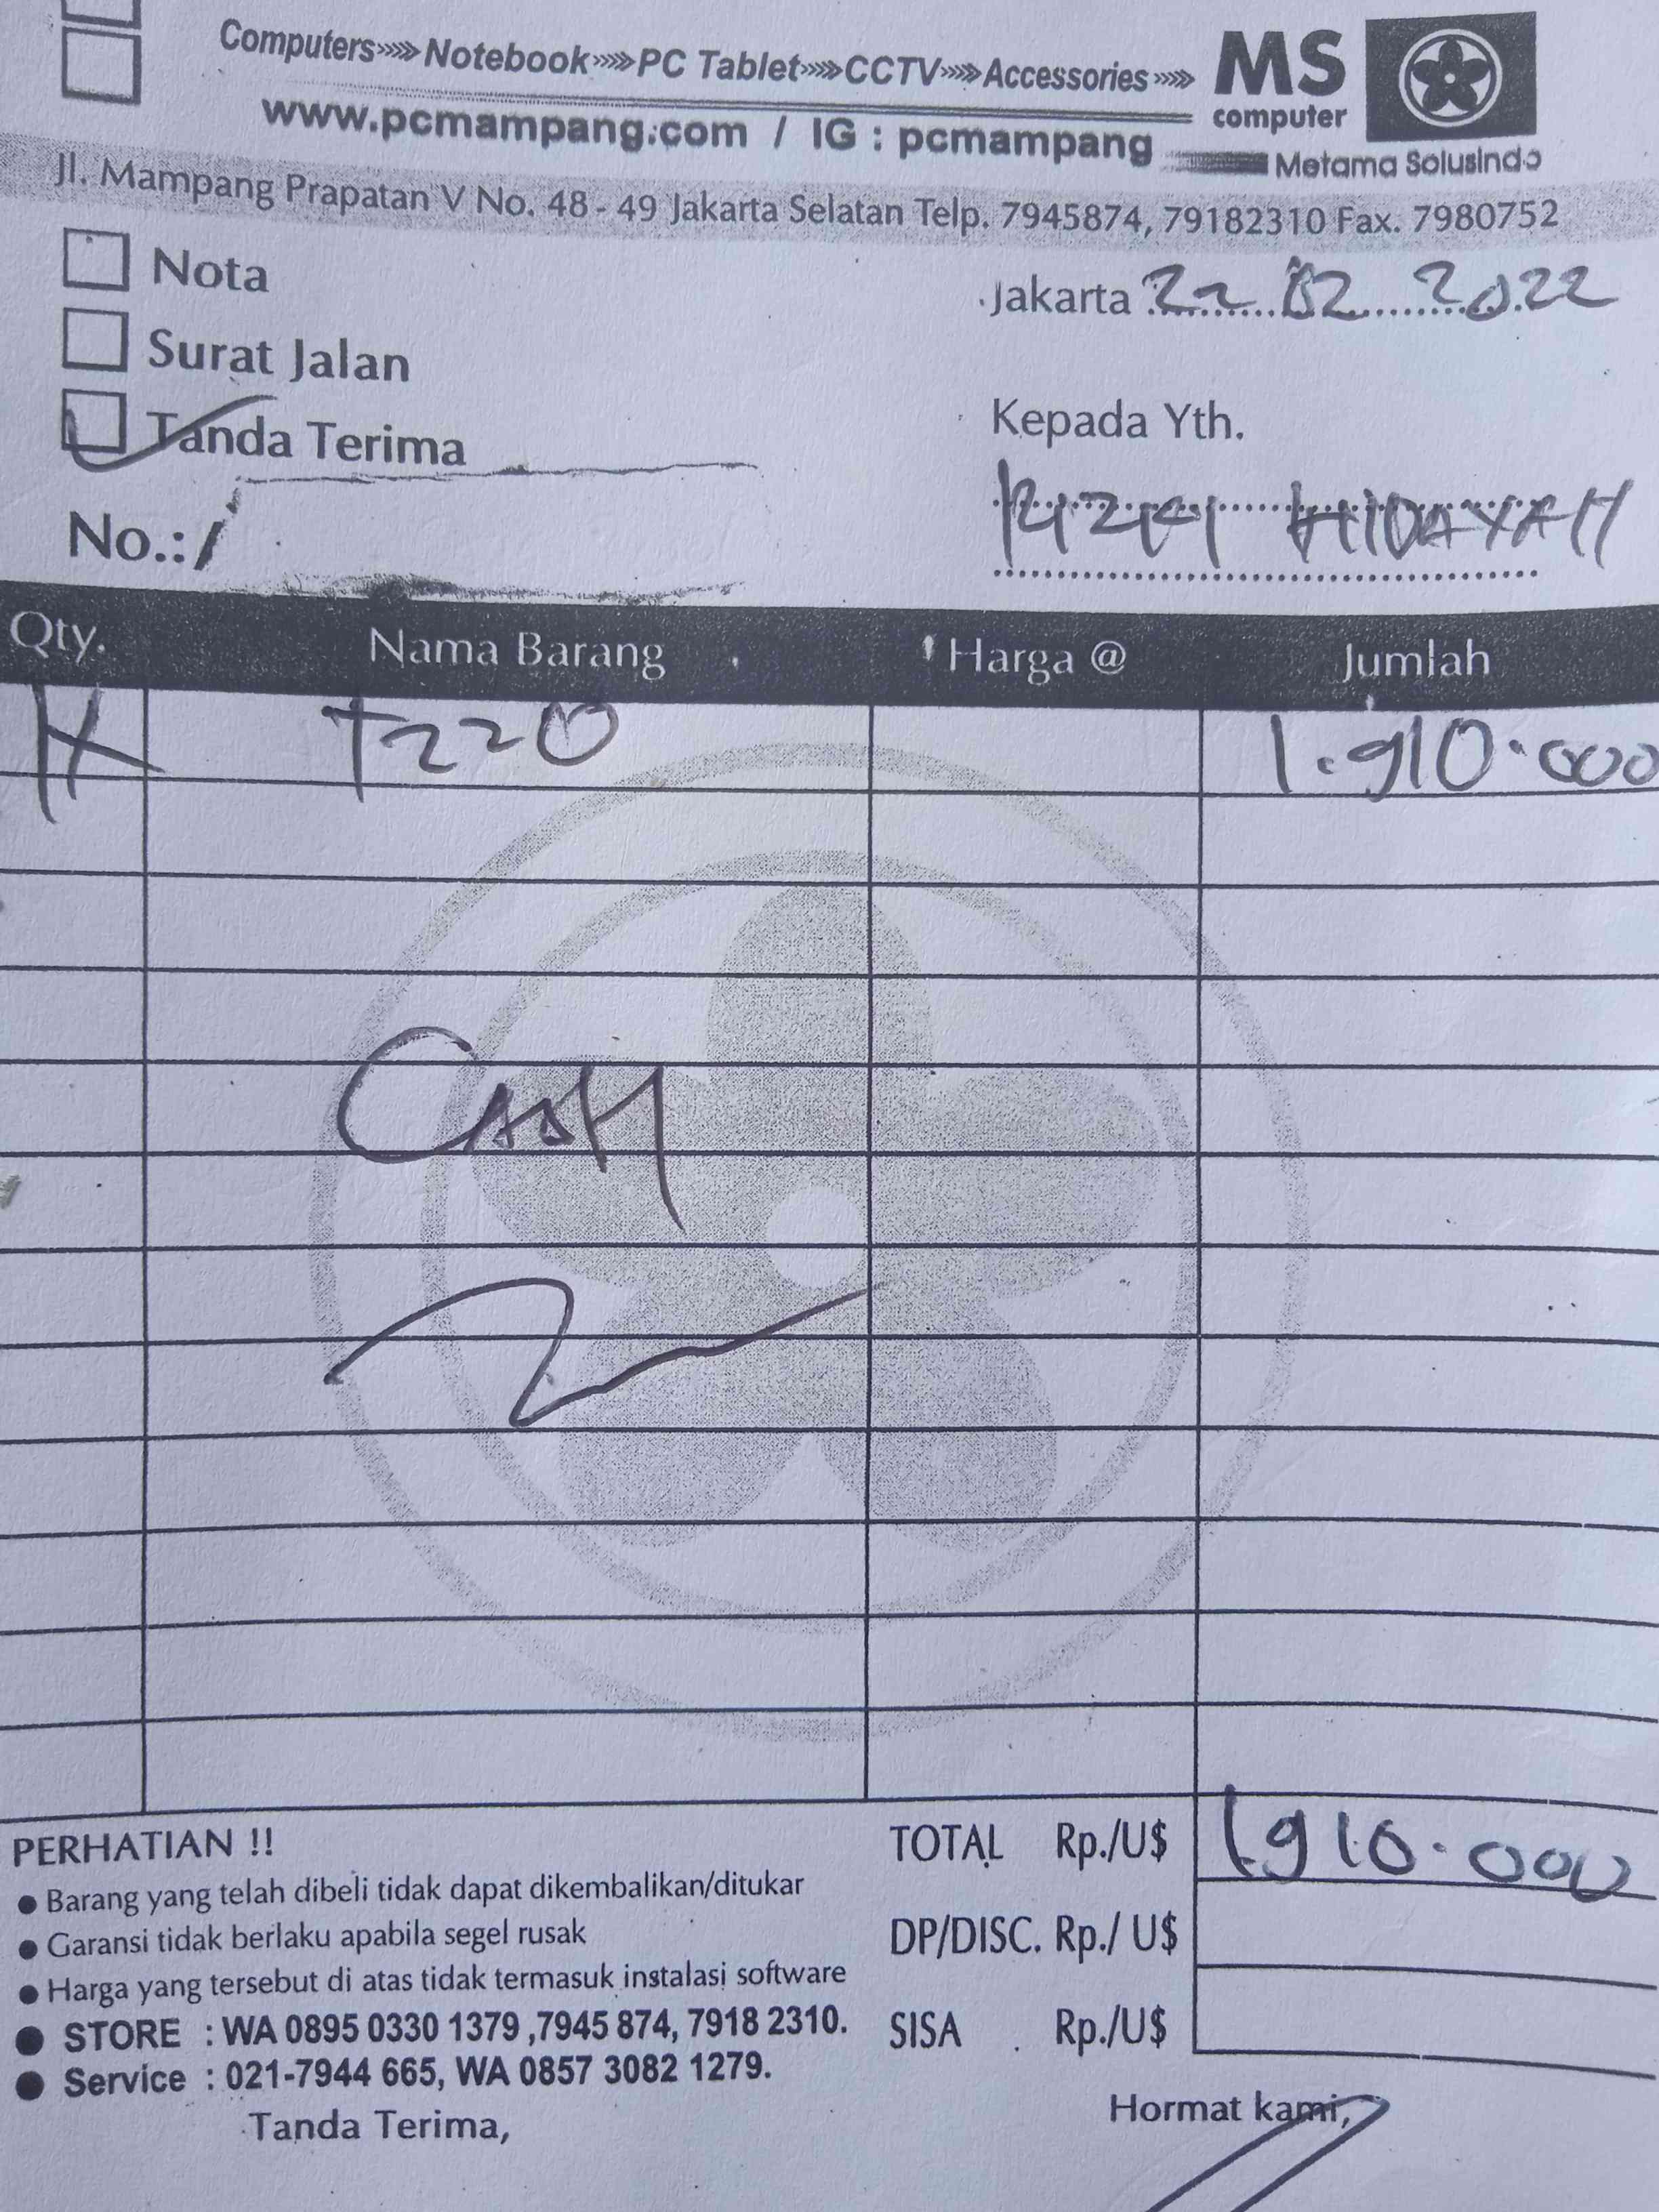 Computers»»» Notebook»»» PC Tablet»»» CCTV»»» Accessories»»»
MS
computer
www.pcmampang.com / IG : pcmampang
Metama Solusindo
Jl. Mampang Prapatan V No. 48 - 49 Jakarta Selatan Telp. 7945874, 79182310 Fax. 7980752
Nota
Jakarta 22 02 2022
Surat Jalan
Tanda Terima
Kepada Yth.
HIDAYAH
No.:
Qty. Nama Barang Harga @ Jumlah
T220 1.910.000
CASH
TOTAL Rp./U$ 1.910.000
PERHATIAN !!
● Barang yang telah dibeli tidak dapat dikembalikan/ditukar
● Garansi tidak berlaku apabila segel rusak
DP/DISC. Rp./ U$
● Harga yang tersebut di atas tidak termasuk instalasi software
● STORE : WA 0895 0330 1379 ,7945 874, 7918 2310.
SISA Rp./U$
● Service : 021-7944 665, WA 0857 3082 1279.
Tanda Terima,
Hormat kami,